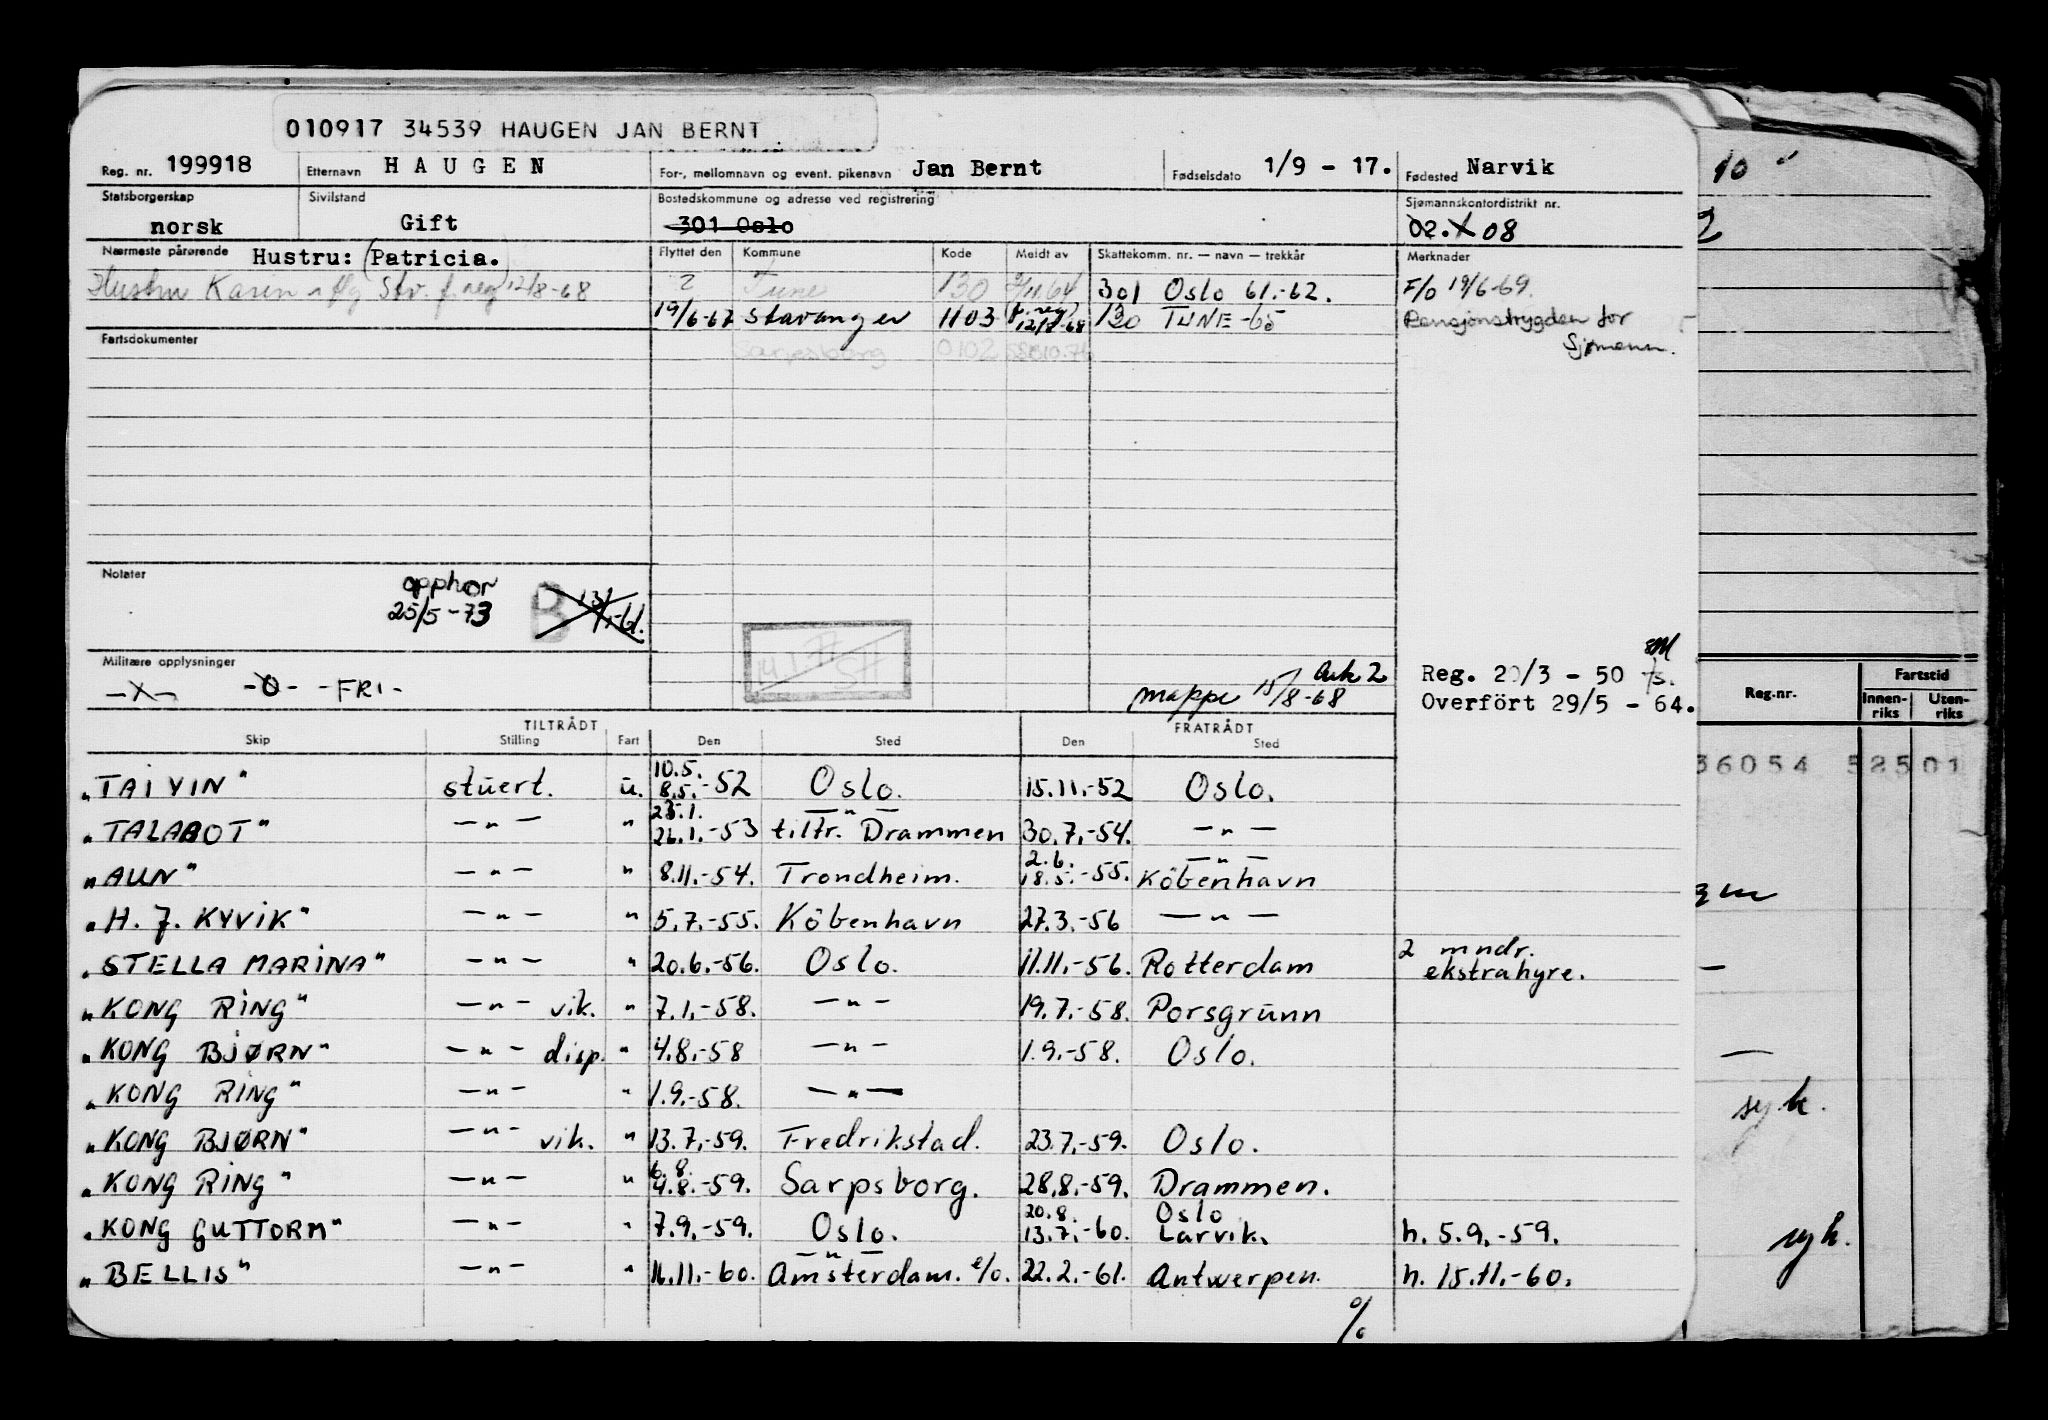 010917 34539 HAUGEN JAN BERNT
Reg. nr. 199918 Etternavn HAUGEN For-, mellomnavn og event. pikenavn Jan Bernt Fødselsdato 1/9 - 17. Fødested Narvik
Statsborgerskap Sivilstand Bostedskommune og adresse ved registrering Sjømannskontordistrikt nr.
norsk Gift 301 Oslo 02. X 08
Nærmeste pårørende Hustru: (Patricia.) Flyttet den Kommune Kode Meldt av Skattekomm. nr. — navn — trekkår Merknader
Hustru Karin 12/8-68 2 Tune 130 301 Oslo 61.-62. F/o 19/6-69.
19/6-67 Stavanger 1103 12/8-68 130 TUNE -65 Pensjonstrygden for
Sjømenn.
Fartsdokumenter Sarpsborg 0102
Notater
opphør
25/5-73 B 13/1-61.
Militære opplysninger
-X- -O- -FRI-
Ark 2
mappe 15/8-68
Reg. 20/3 - 50
Overført 29/5 - 64.
TILTRÅDT FRATRÅDT
Skip Stilling Fart Den Sted Den Sted
"TAI YIN" stuert. u. 10.5. 8.5.-52 Oslo. 15.11.-52 Oslo.
"TALABOT" —"— " 23.1. 26.1.-53 —"— tiltr. Drammen 30.7.-54. —"—
"AUN" —"— " 8.11.-54. Trondheim. 2.6. 18.5.-55. —"— København
"H. J. KYVIK" —"— " 5.7.-55. København 27.3.-56 —"—
"STELLA MARINA" —"— " 20.6.-56. Oslo. 11.11.-56. Rotterdam 2 mndr. ekstrahyre.
"KONG RING" —"— vik. " 7.1.-58. —"— 19.7.-58. Porsgrunn
"KONG BJØRN" —"— disp. " 4.8.-58 —"— 1.9.-58. Oslo.
"KONG RING" —"— " 1.9.-58. —"—
"KONG BJØRN" —"— vik. " 13.7.-59. Fredrikstad. 23.7.-59. Oslo.
"KONG RING" —"— " 6.8. 4.8.-59. Sarpsborg. 28.8.-59. Drammen.
"KONG GUTTORM" —"— " 7.9.-59. Oslo. 20.8. 13.7.-60. Oslo Larvik. h. 5.9.-59.
"BELLIS" —"— " 16.11.-60. —"— Amsterdam. e/o. 22.2.-61. Antwerpen. h. 15.11.-60.
%
10"
2
Reg.nr. Fartstid
Innen-riks Uten-riks
36054 52501
syk.
syk.